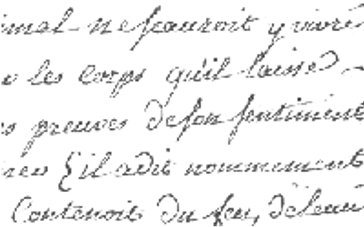 imal ne scauroit y vivre
les corps qu'il laisse
s preuves de son sentiment
s'il a dit nommement
Contenoit du feu, de l'eau